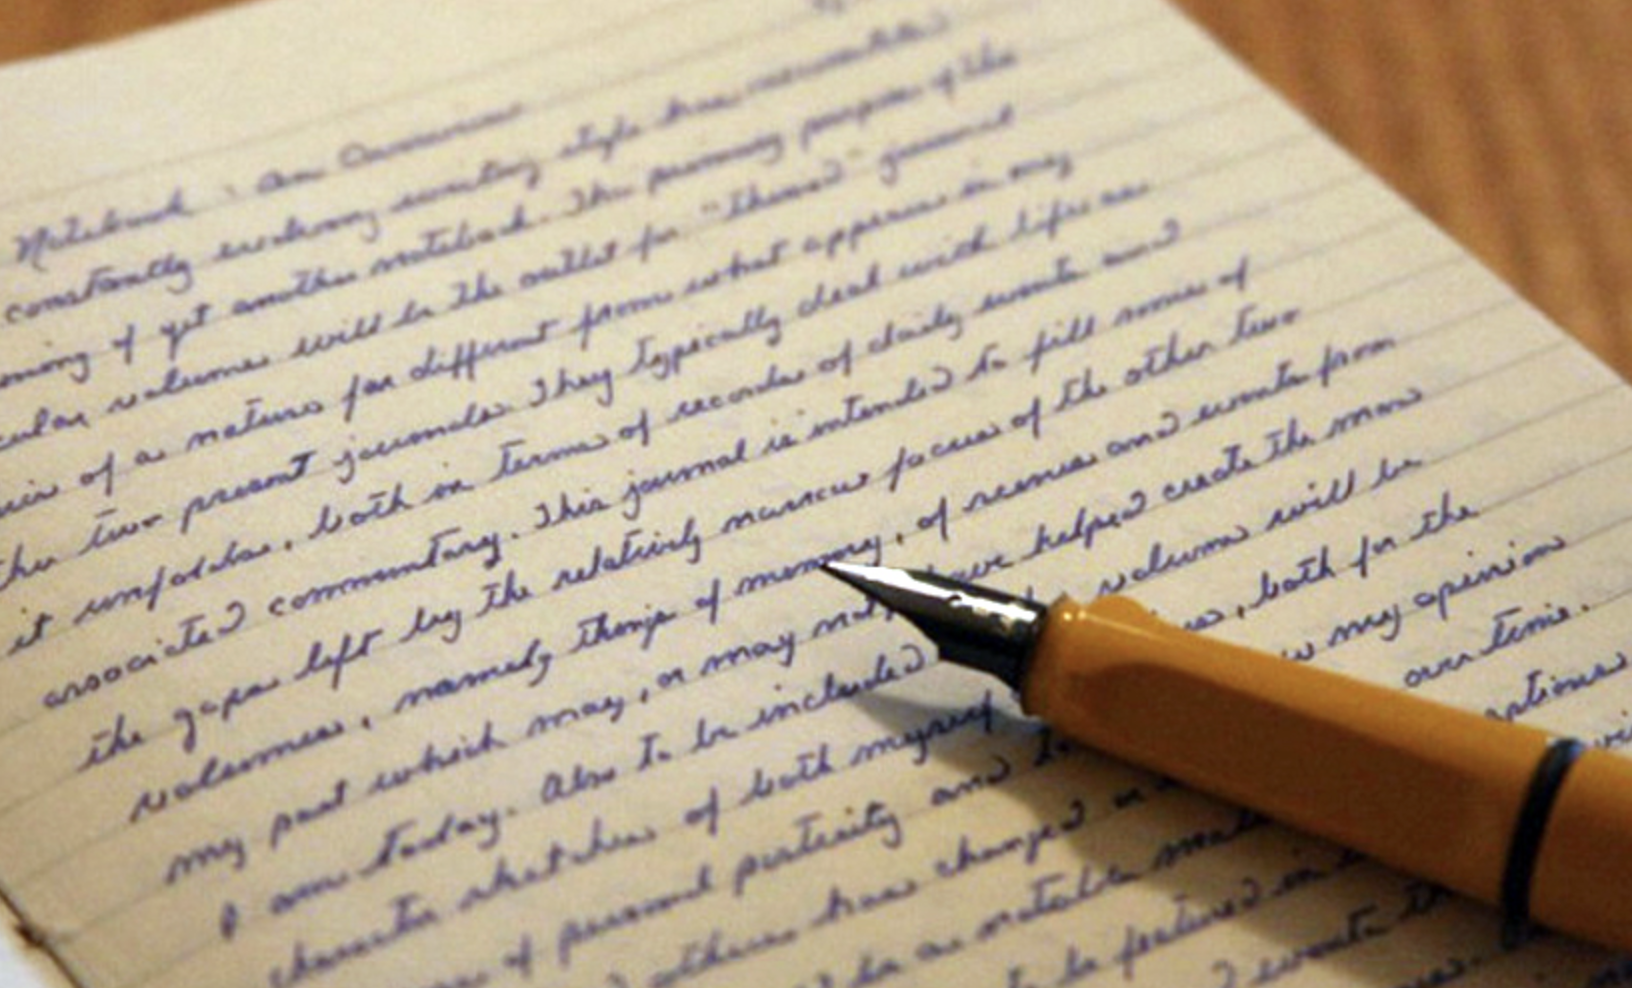 Notebook: An Overview
constantly evolving writing style has
of yet another notebook. The primary purpose of the
volume will be the outlet for "themed" journal
of a nature far different from what appears in my
two present journals. They typically deal with life as
it unfolds, both in terms of records of daily events and
associated commentary. This journal is intended to fill some of
the gaps left by the relatively narrow focus of the other two
volumes, namely things of memory, of scenes and events from
my past which may, or may not, have helped create the man
I am today. Also to be included volume will be
character sketches of both myself both for the
of personal posterity and my opinion
others have changed or over time.
be as notable
to be featured in
events